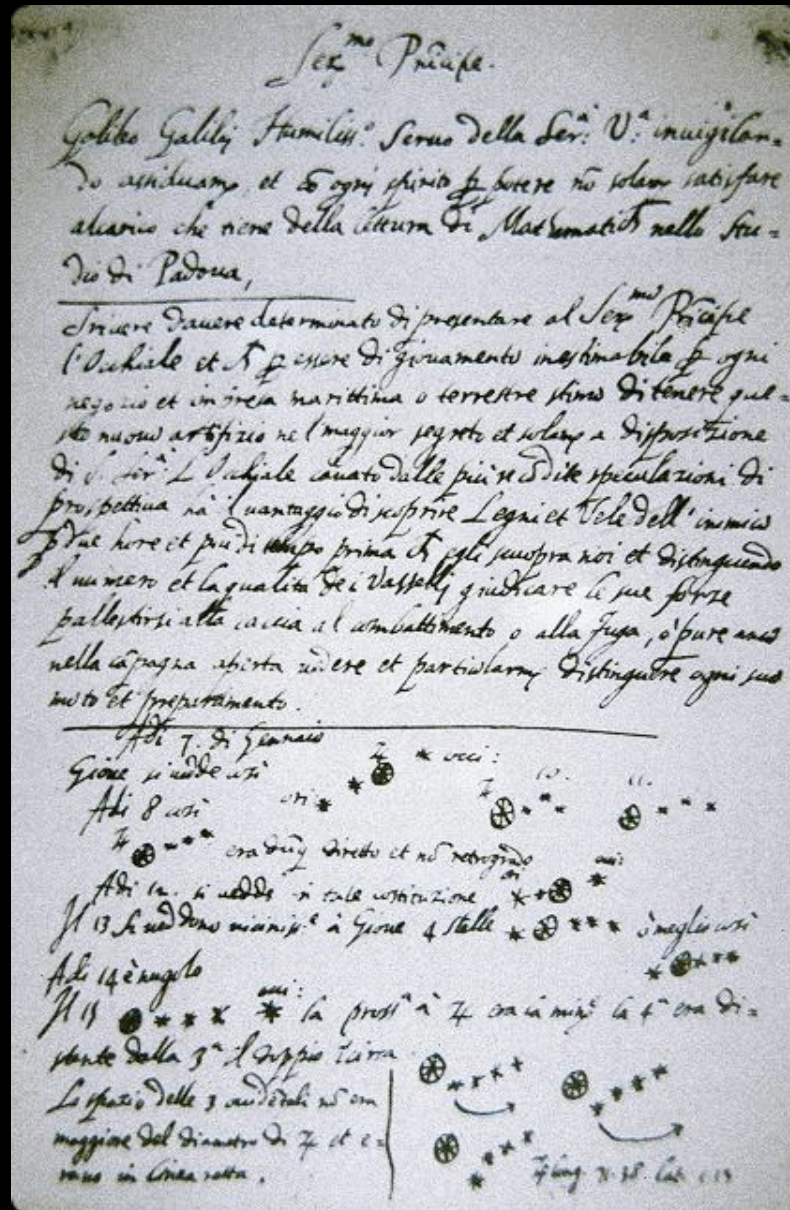 Ser.mo Prĩcipe.
Galileo Galilej Humiliss.o Seruo della Ser.a V.a inuigilan=
do assiduam.e et cõ ogni spirito p̱ potere nõ solam satisfare
alcarico che tiene della lettura di Mathematich nello Stu=
dio di Padoua,
Scriuere dauere determinato di presentare al Ser.mo Prĩcipe
l'Occhiale et ch p̱ essere di giouamento inestimabile p̱ ogni
negozio et impresa marittima o terrestre stimo di tenere que=
sto nuouo artifizio nel maggior segreto et solam a disposizione
di S. Ser.a L'Occhiale cauato dalle più recõdite speculazioni di
prospettiua ha il uantaggio di scoprire Legni et Vele dell'inimico
p̱ due hore et più di tempo prima ch egli scuopra noi et distinguendo
il numero et la qualità de i Vasselli giudicare le sue forze
pallestirsi alla caccia al combattimento o alla fuga, ò pure anco
nella cãpagna aperta uedere et particularm distinguere ogni suo
moto et preparamento.
Adi 7. di Gennaio
Gioue si uede così ♃ occ:
Adi 8 così ori ♃ 10. 11.
♃ era dũq diretto et nõ retrogrado
Adi 12. si uedde in tale costituzione ori occ:
Il 13 si ueddono uiciniss.e à Gioue 4 stelle ò meglio così
Adi 14 è nugolo
Il 15 occ: la pross.a à ♃ era la min.e la 4.a era di=
stante dalla 3.a il doppio circa
Lo spazio delle 3 occidẽtali nõ era
maggiore del diametro di ♃ et e=
rano in linea retta.
♃ long. 71.38. Lat. 1.13